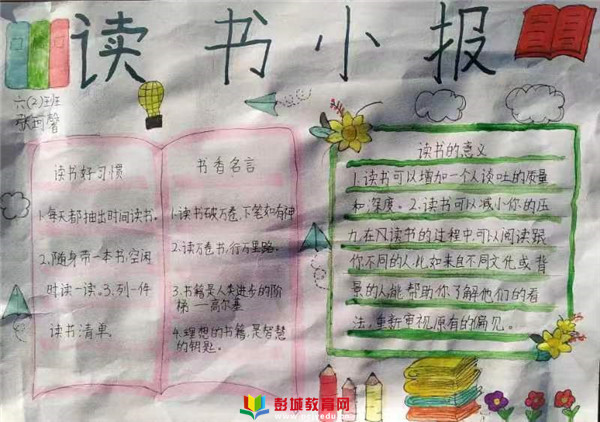 读书小报
六(2)班
读书好习惯
1.每天都抽出时间读书。
2.随身带一本书空闲
时读一读。3.列一件
读书清单。
书香名言
1.读书破万卷,下笔如有神
2.读万卷书,行万里路。
3.书籍是人类进步的阶
梯——高尔基
4.理想的书籍,是智慧
的钥匙。
读书的意义
1.读书可以增加一个人谈吐的质量
和深度。2.读书可以减小你的压
力,在
读书的过程中,可以阅读跟
你不同的人,比如来自不同文化或背
景的人,能帮助你了解他们的看
法,重新审视原有的偏见。
彭城教育网
www.pcjyedu.com